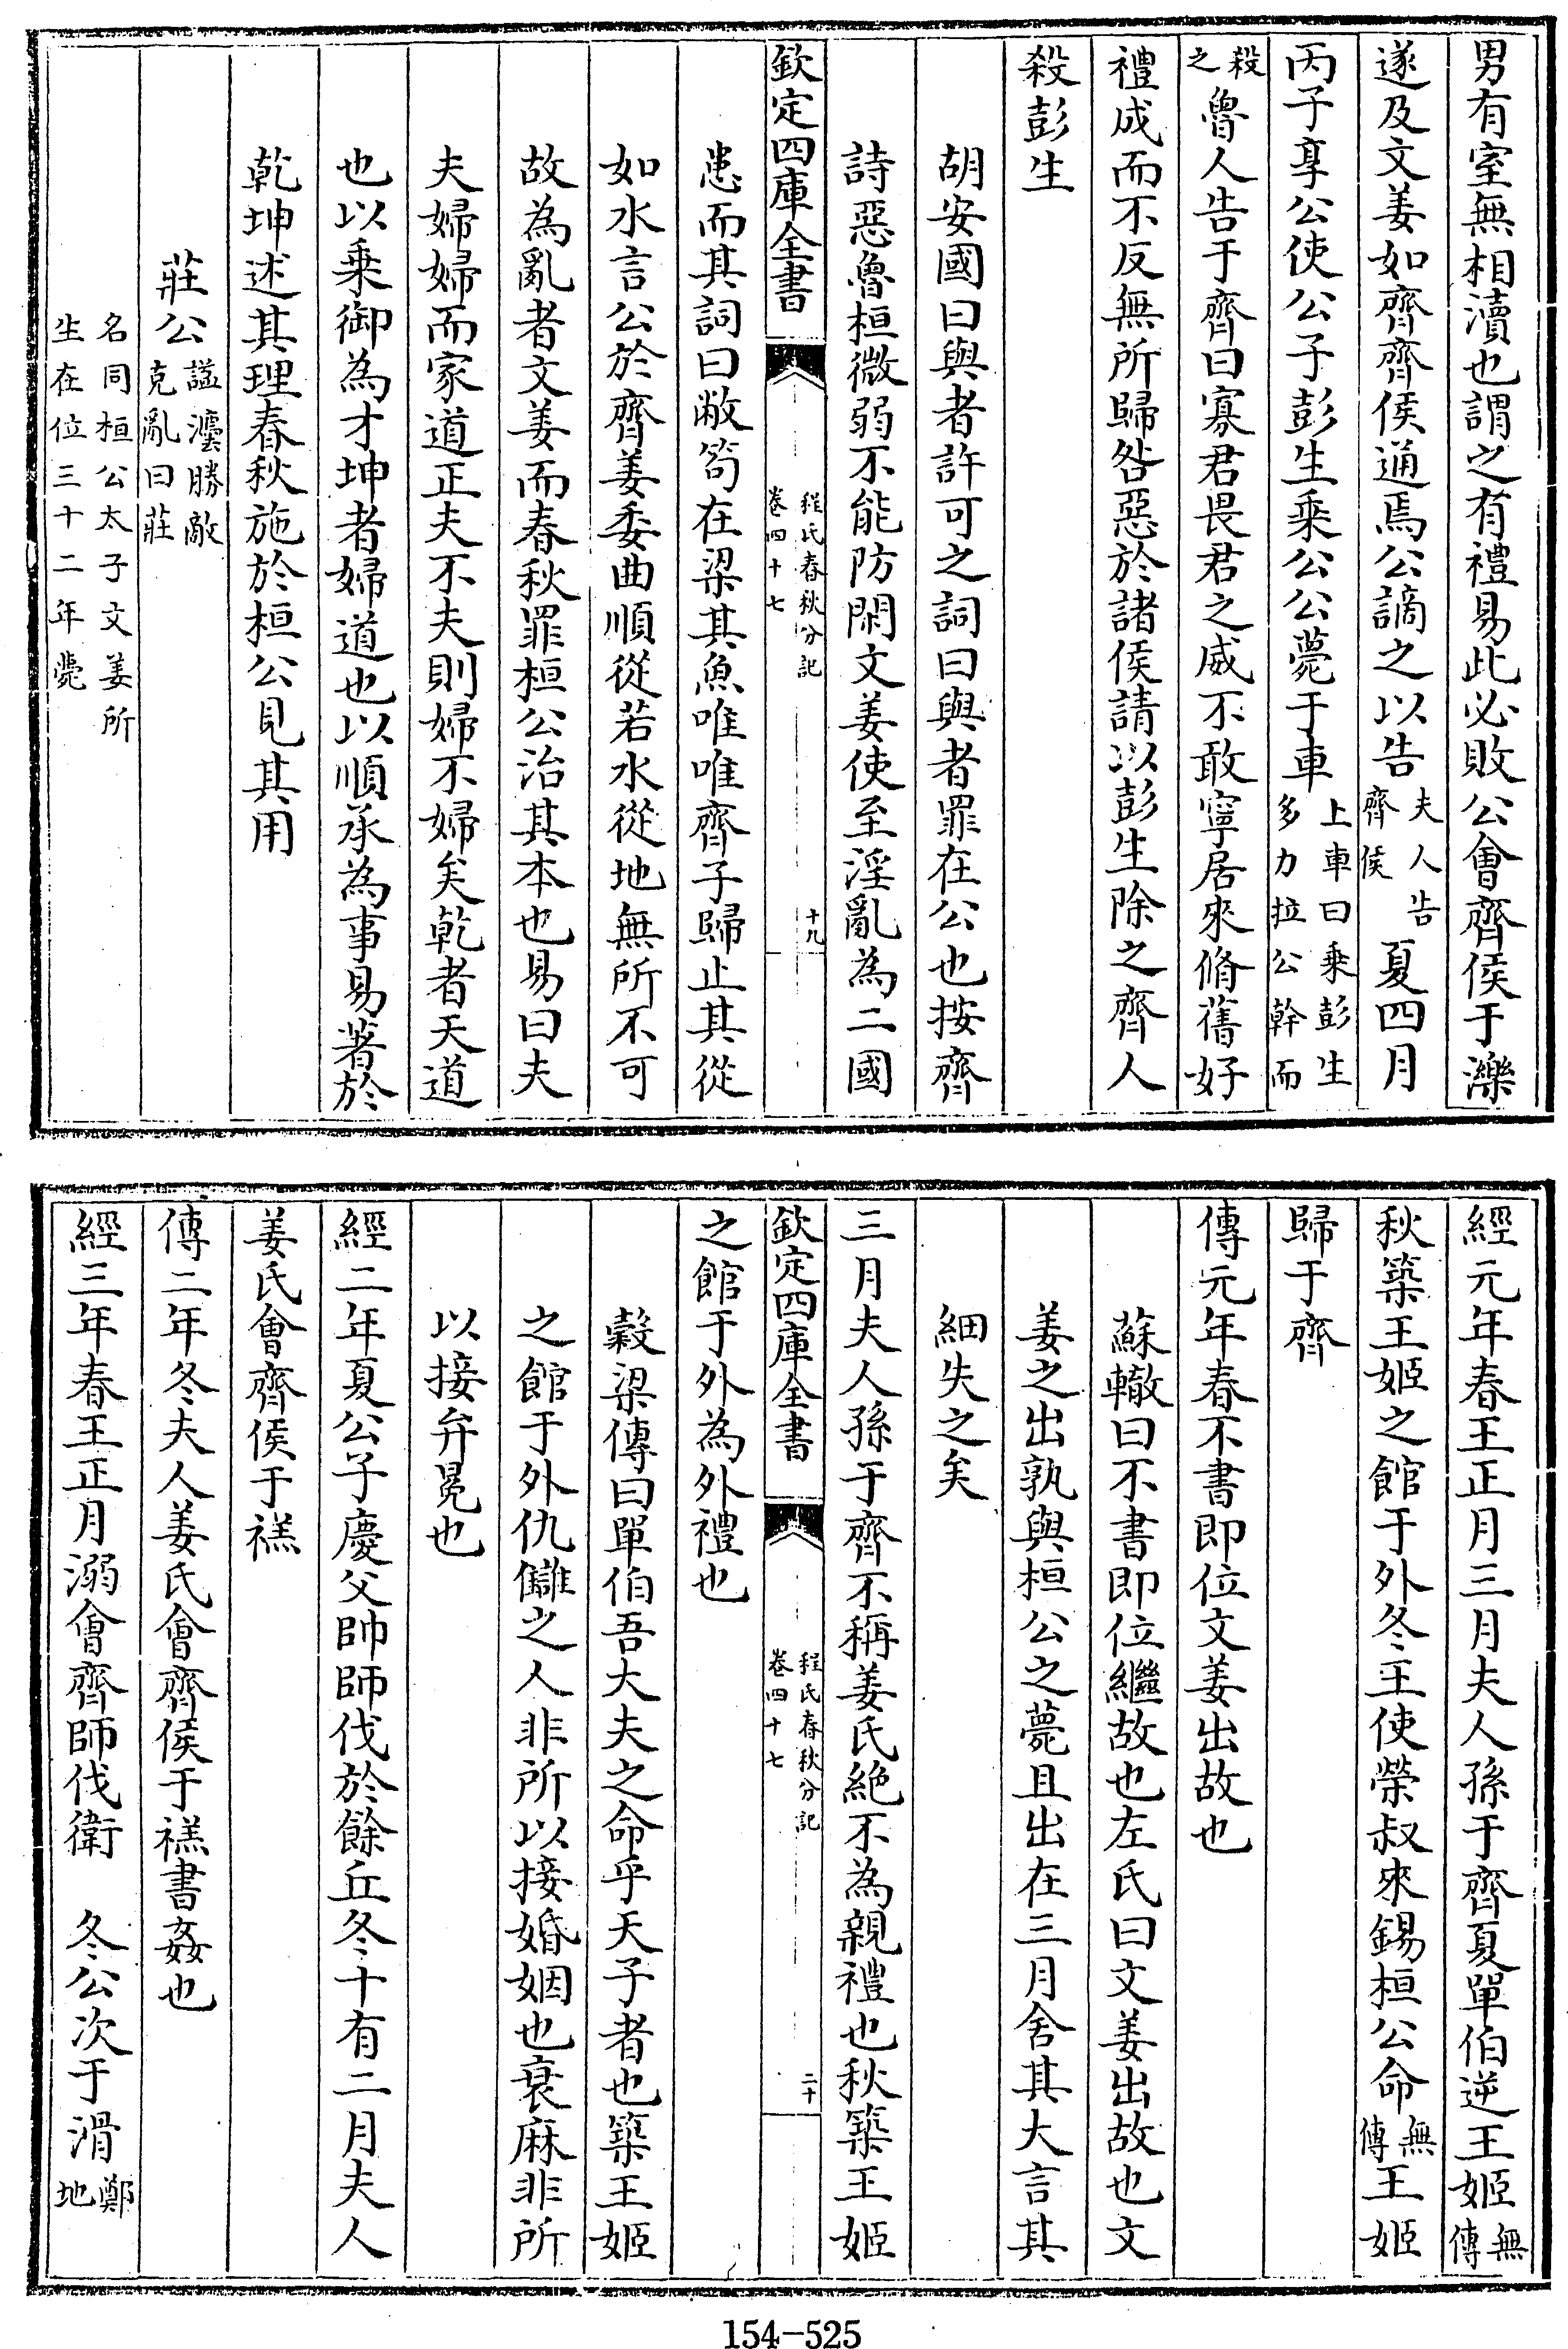 男有室無相瀆也謂之有禮易此必敗公會齊侯于濼
遂及文姜如齊齊侯通焉公謫之以告夫人告齊侯夏四月
丙子享公使公子彭生乘公公薨于車上車曰乘彭生多力拉公幹而
殺之魯人告于齊曰寡君畏君之威不敢寧居來脩舊好
禮成而不反無所歸咎惡於諸侯請以彭生除之齊人
殺彭生
胡安國曰與者許可之詞曰與者罪在公也按齊
詩惡魯桓微弱不能防閑文姜使至淫亂為二國
欽定四庫全書
程氏春秋分記
卷四十七
十九
患而其詞曰敝笱在梁其魚唯唯齊子歸止其從
如水言公於齊姜委曲順從若水從地無所不可
故為亂者文姜而春秋罪桓公治其本也易曰夫
夫婦婦而家道正夫不夫則婦不婦矣乾者天道
也以乘御為才坤者婦道也以順承為事易著於
乾坤述其理春秋施於桓公見其用
莊公諡灋勝敵克亂曰莊
名同桓公太子文姜所
生在位三十二年薨
經元年春王正月三月夫人孫于齊夏單伯逆王姬無傳
秋築王姬之館于外冬王使榮叔來錫桓公命無傳王姬
歸于齊
傳元年春不書即位文姜出故也
蘇轍曰不書即位繼故也左氏曰文姜出故也文
姜之出孰與桓公之薨且出在三月舍其大言其
細失之矣
三月夫人孫于齊不稱姜氏絶不為親禮也秋築王姬
欽定四庫全書
程氏春秋分記
卷四十七
二十
之館于外為外禮也
穀梁傳曰單伯吾大夫之命乎天子者也築王姬
之館于外仇讎之人非所以接婚姻也衰麻非所
以接弁冕也
經二年夏公子慶父帥師伐於餘丘冬十有二月夫人
姜氏會齊侯于禚
傳二年冬夫人姜氏會齊侯于禚書姦也
經三年春王正月溺會齊師伐衛　冬公次于滑鄭地
154-525